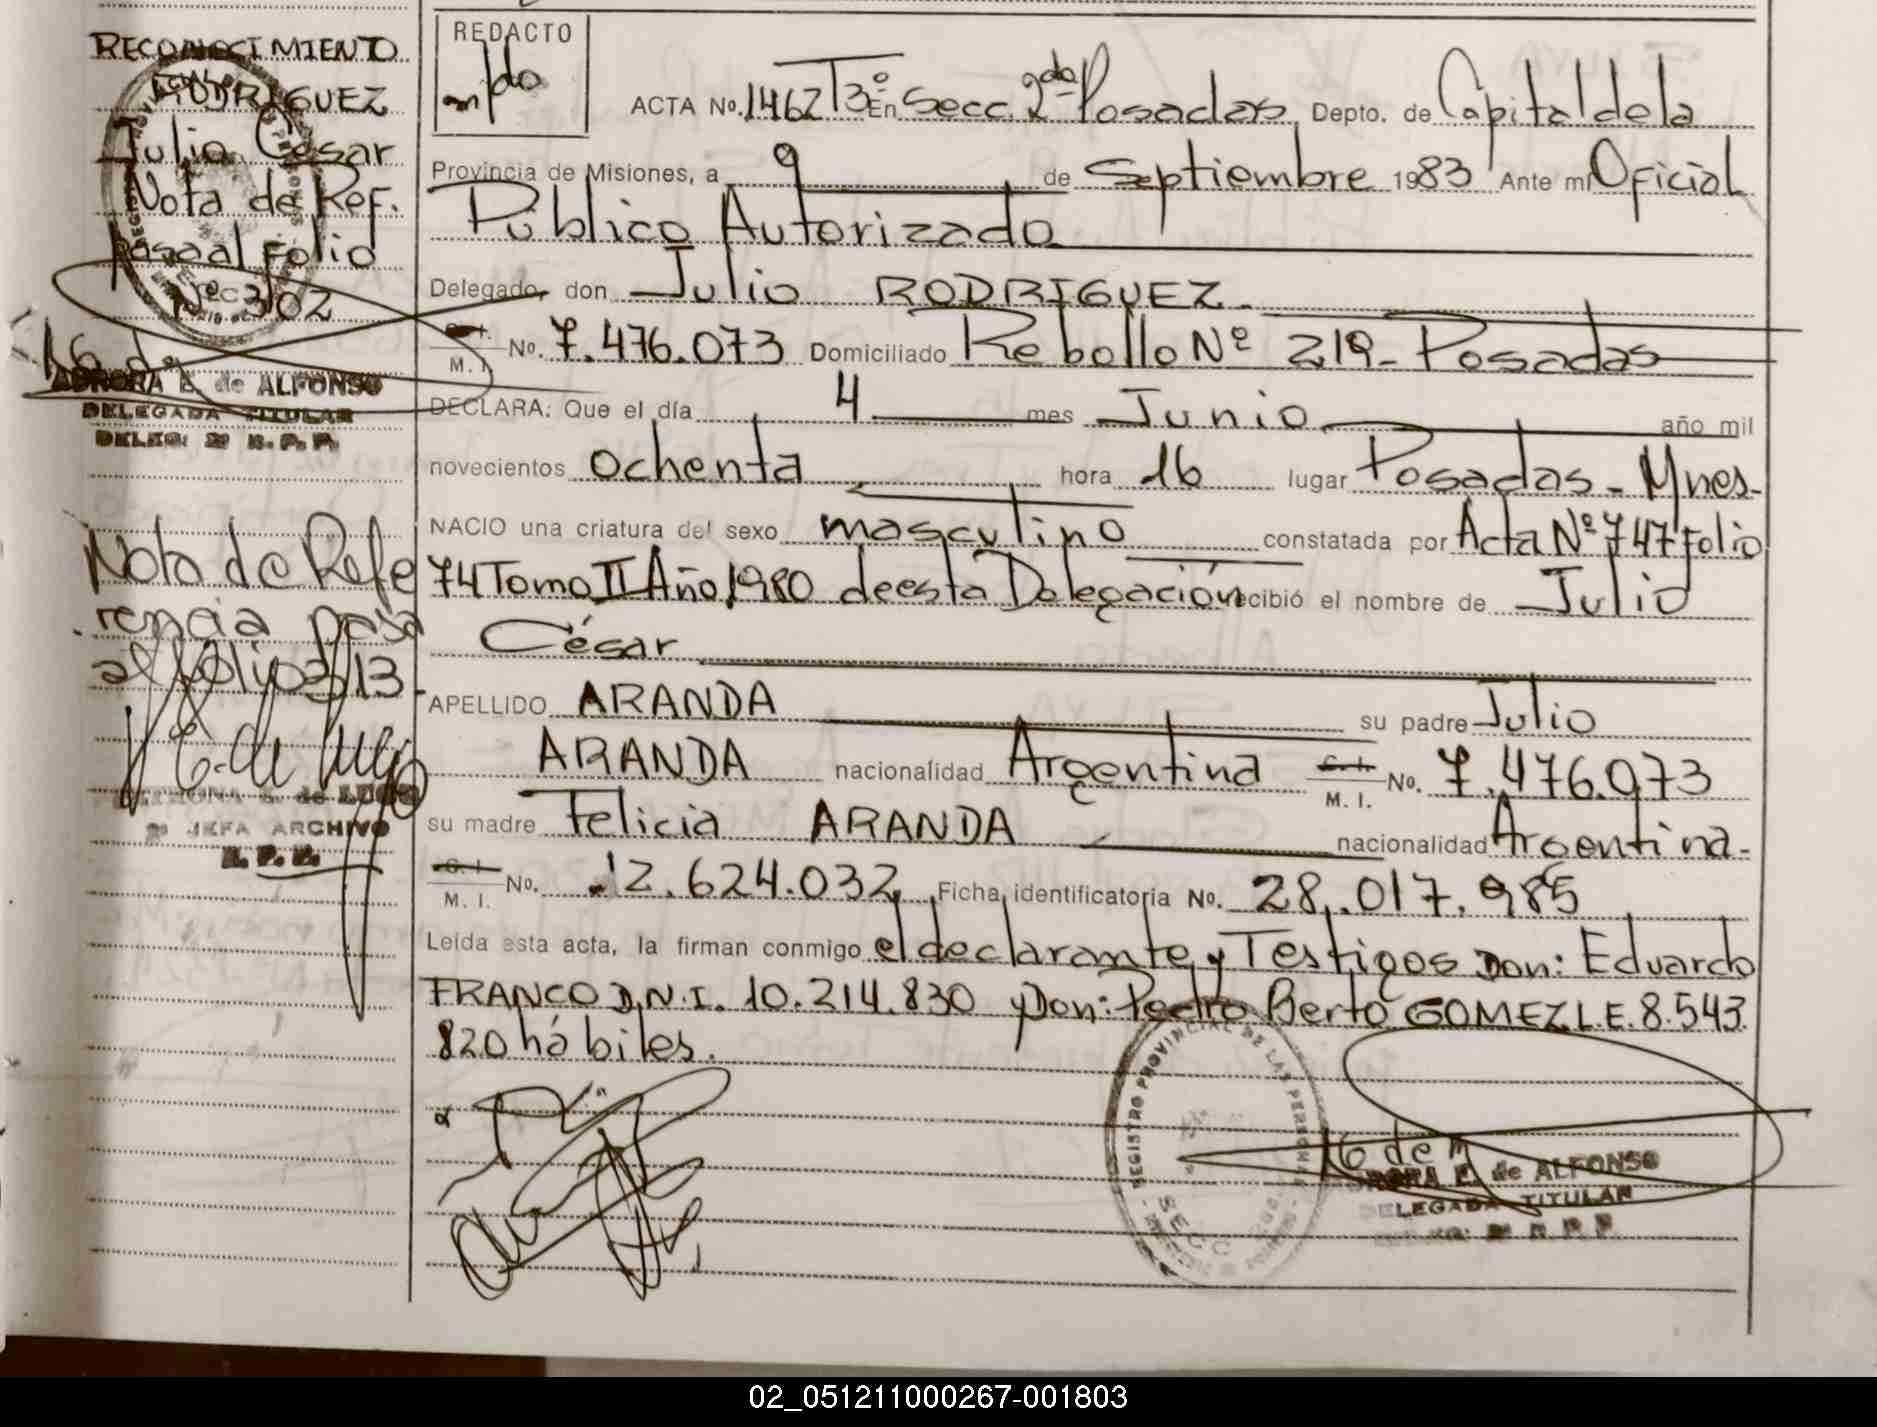 RECONOCIMIENTO
RODRIGUEZ
Julio César
Nota de Ref.
Pasa al Folio
Nº 302
AURORA E. de ALFONSO
DELEGADA TITULAR
DELEG: 2ª R. P. P.
Nota de Refe
rencia pasa
al folio 313-
PETRONA E. de LUGO
2ª JEFA ARCHIVO
R. P. P.
REDACTO
ACTA No. 1462 T3º En Secc. 2da Posadas Depto. de Capital de la
Provincia de Misiones, a 9 de Septiembre 1983 Ante mi Oficial
Público Autorizado
Delegado, don Julio RODRIGUEZ.
C. I.
M. I. No. 7.476.073 Domiciliado Rebollo Nº 219- Posadas
DECLARA: Que el día 4 mes Junio año mil
novecientos ochenta hora 16 lugar Posadas - Mnes-
NACIO una criatura del sexo masculino constatada por Acta Nº 747 Folio
74 Tomo II Año 1980 de esta Delegación recibió el nombre de Julio
César
APELLIDO ARANDA su padre Julio
ARANDA nacionalidad Argentina C. I. M. I. No. 7.476.073
su madre Felicia ARANDA nacionalidad Argentina-
C. I.
M. I. No. 12.624.032 Ficha identificatoria No. 28.017.985
Leída esta acta, la firman conmigo el declarante y Testigos Don: Eduardo
FRANCO D.N.I. 10.214.830 y Don: Pedro Berto GOMEZ L.E. 8.543.
820 hábiles.
REGISTRO PROVINCIAL DE LAS PERSONAS
SECC
AURORA E. de ALFONSO
DELEGADA TITULAR
02_051211000267-001803